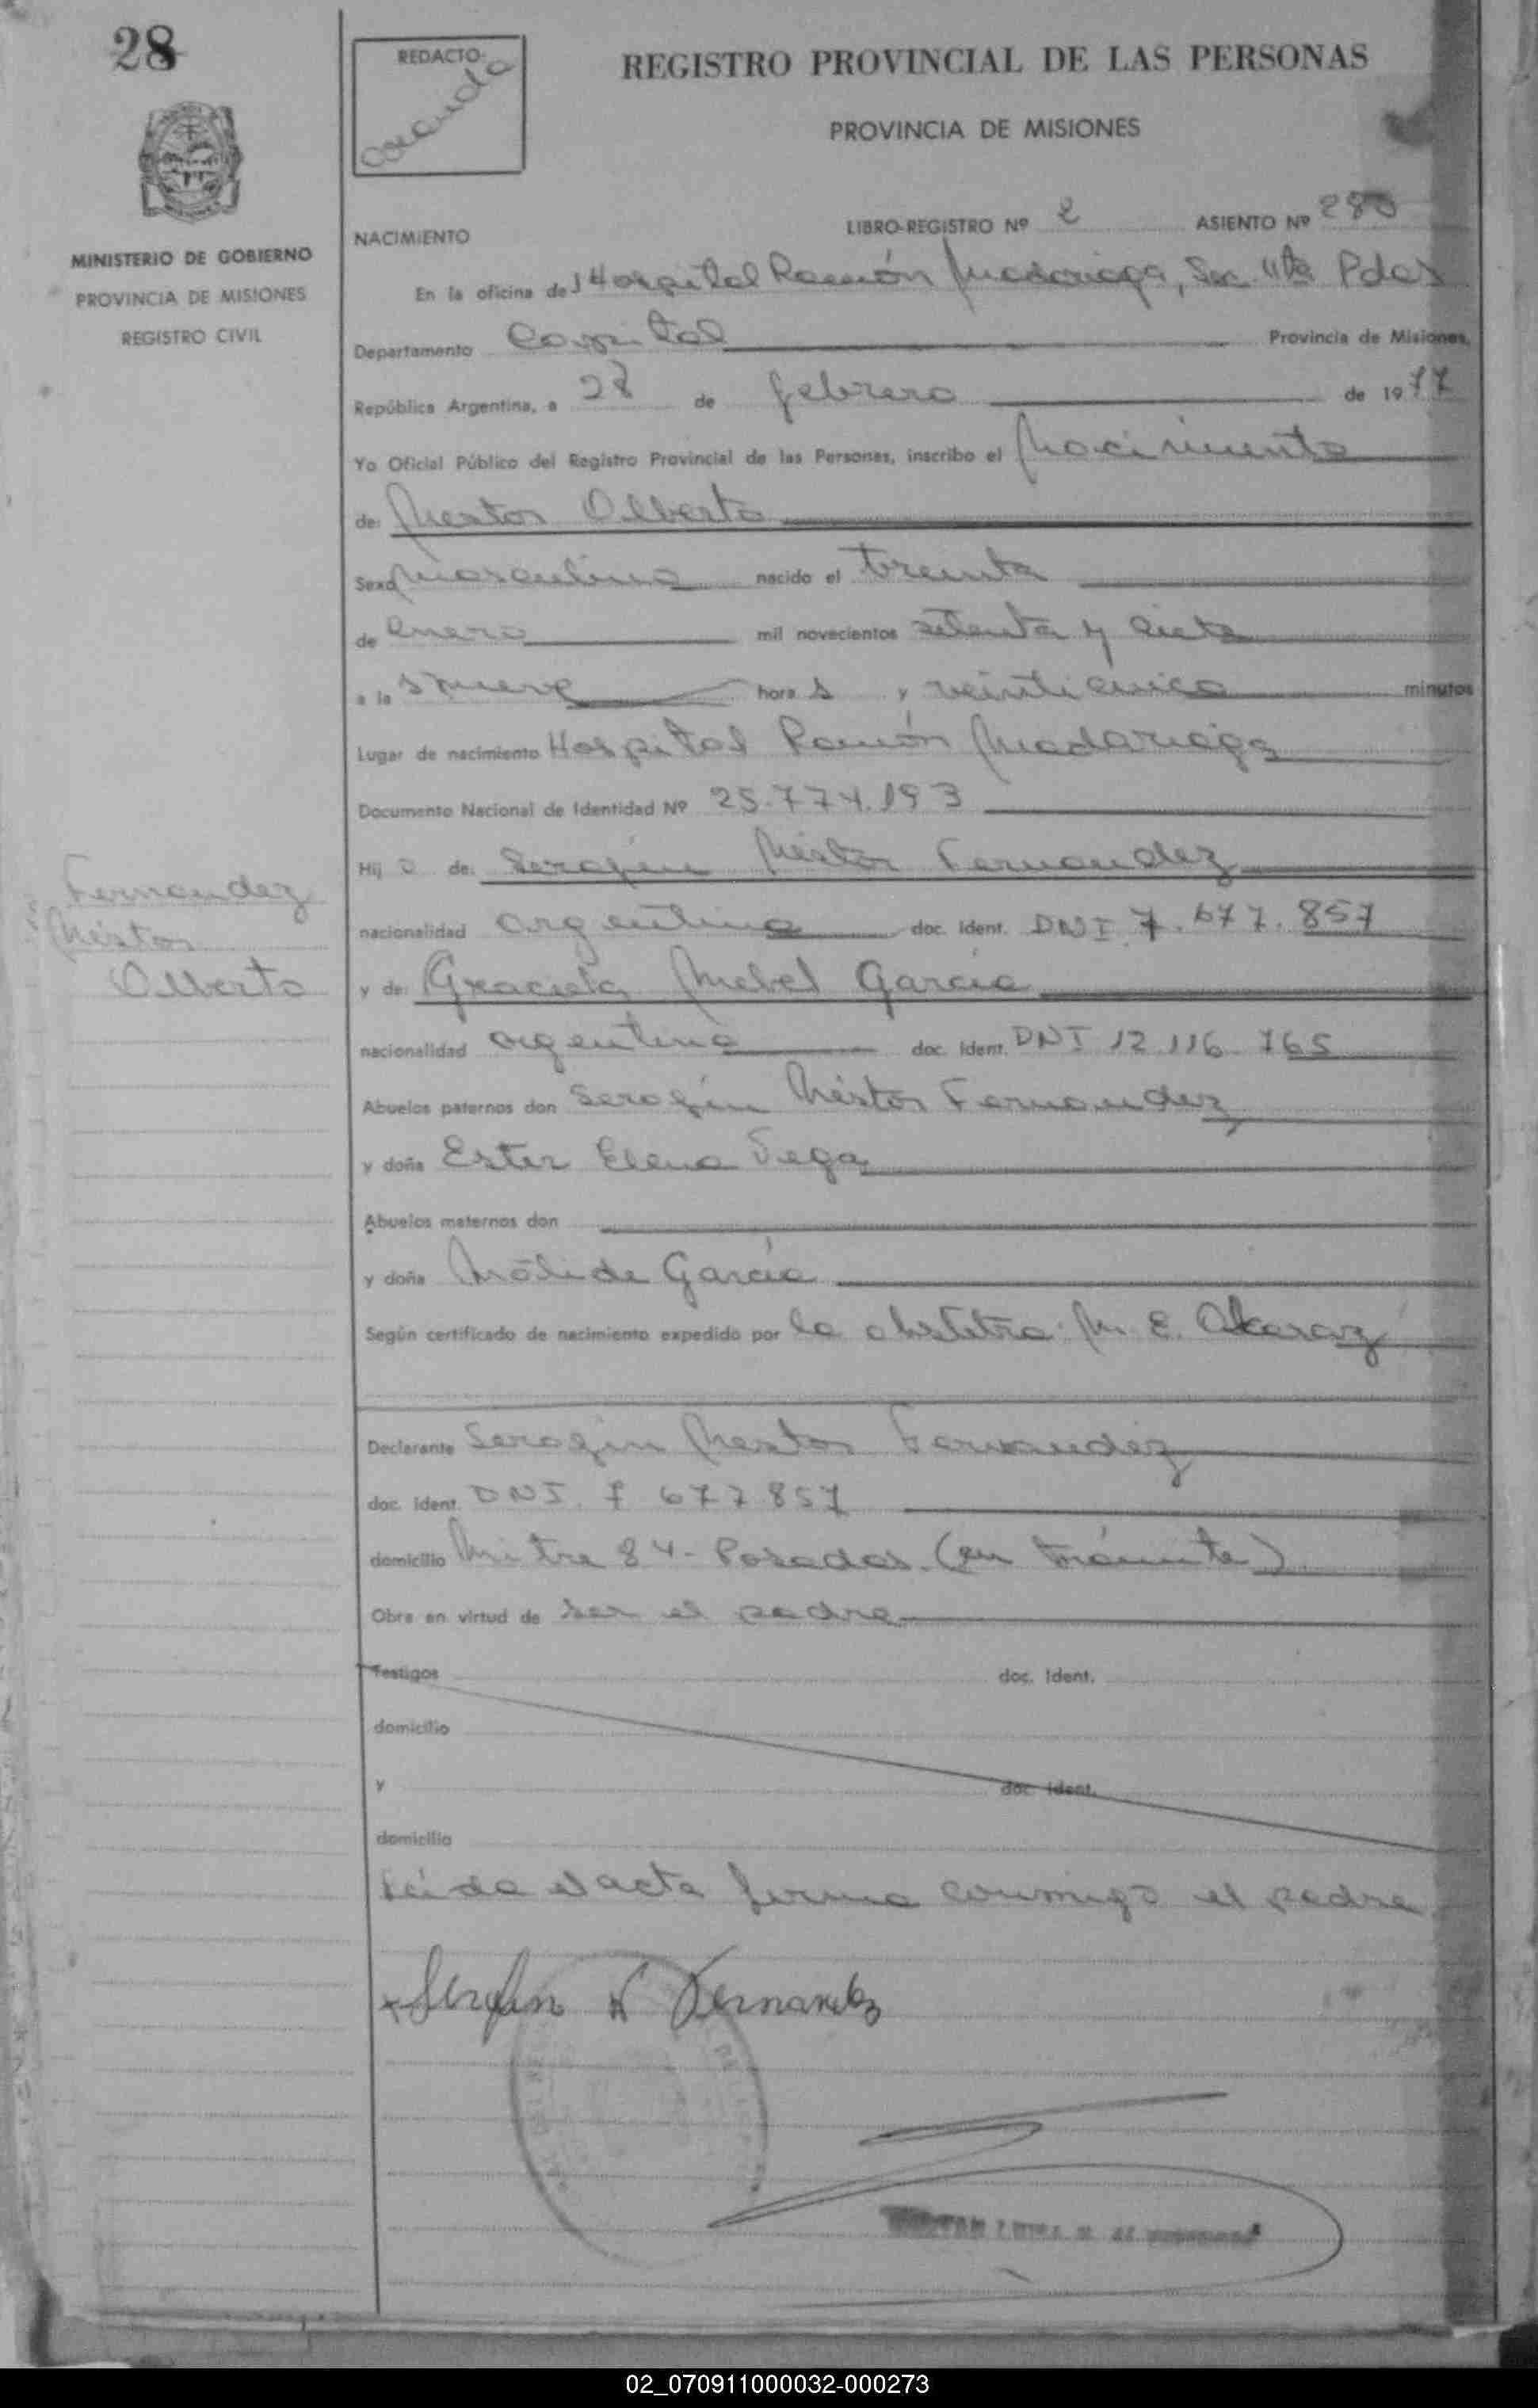 28
REDACTO:
REGISTRO PROVINCIAL DE LAS PERSONAS
PROVINCIA DE MISIONES
MINISTERIO DE GOBIERNO
PROVINCIA DE MISIONES
REGISTRO CIVIL
NACIMIENTO LIBRO-REGISTRO Nº 2 ASIENTO Nº 280
En la oficina del Hospital Ramón Madariaga, Sec. 11ta Pdas
Departamento Capital Provincia de Misiones,
República Argentina, a 28 de febrero de 1977
Yo Oficial Público del Registro Provincial de las Personas, inscribo el Nacimiento
de: Nestor Alberto
Sexo masculino nacido el treinta
de enero mil novecientos setenta y siete
a las nueve horas y veinticinco minutos
Lugar de nacimiento Hospital Ramón Madariaga
Documento Nacional de Identidad Nº 25.774.193
Hijo de: Serafín Néstor Fernandez
Fernandez
Néstor
Alberto
nacionalidad argentina doc. Ident. DNI 7.677.857
y de: Graciela Mabel García
nacionalidad argentina doc. Ident. DNI 12.116.765
Abuelos paternos don Serafín Néstor Fernandez
y doña Ester Elena Vega
Abuelos maternos don
y doña Nélide García
Según certificado de nacimiento expedido por la obstetra M. E. Alcaraz
Declarante Serafin Nestor Fernandez
doc. Ident. DNI. 7 677.857
domicilio Mitre 84- Posadas. (en trámite)
Obra en virtud de ser el padre
Testigos doc. Ident.
domicilio
y doc. Ident.
domicilio
Leída el acta firma conmigo el padre
Serafin N Fernandez
02_070911000032-000273